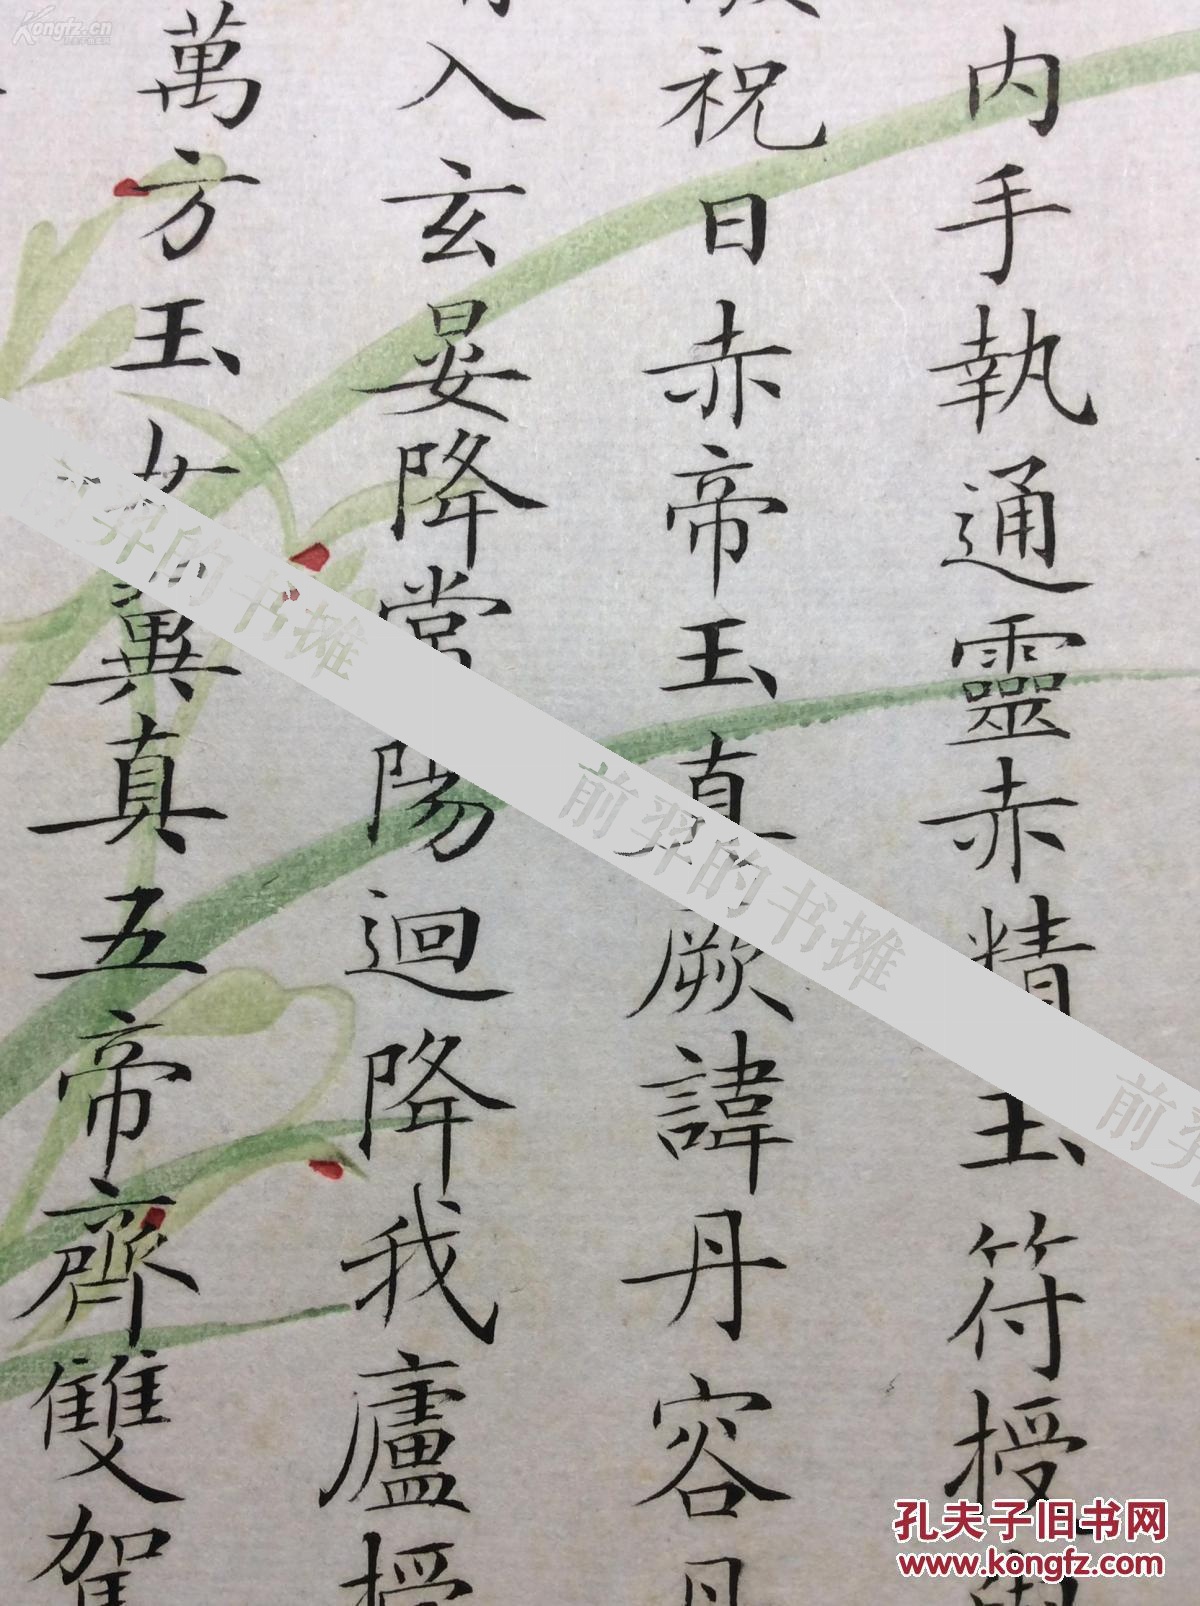 内手執通靈赤精玉符授
祝曰赤帝玉真厥諱丹容丹
入玄晏降常陽迴降我廬授
萬方玉女翼真五帝齊雙駕
Kongfz.cn
前羿的书摊
前羿的书摊
前羿
孔夫子旧书网
www.kongfz.com